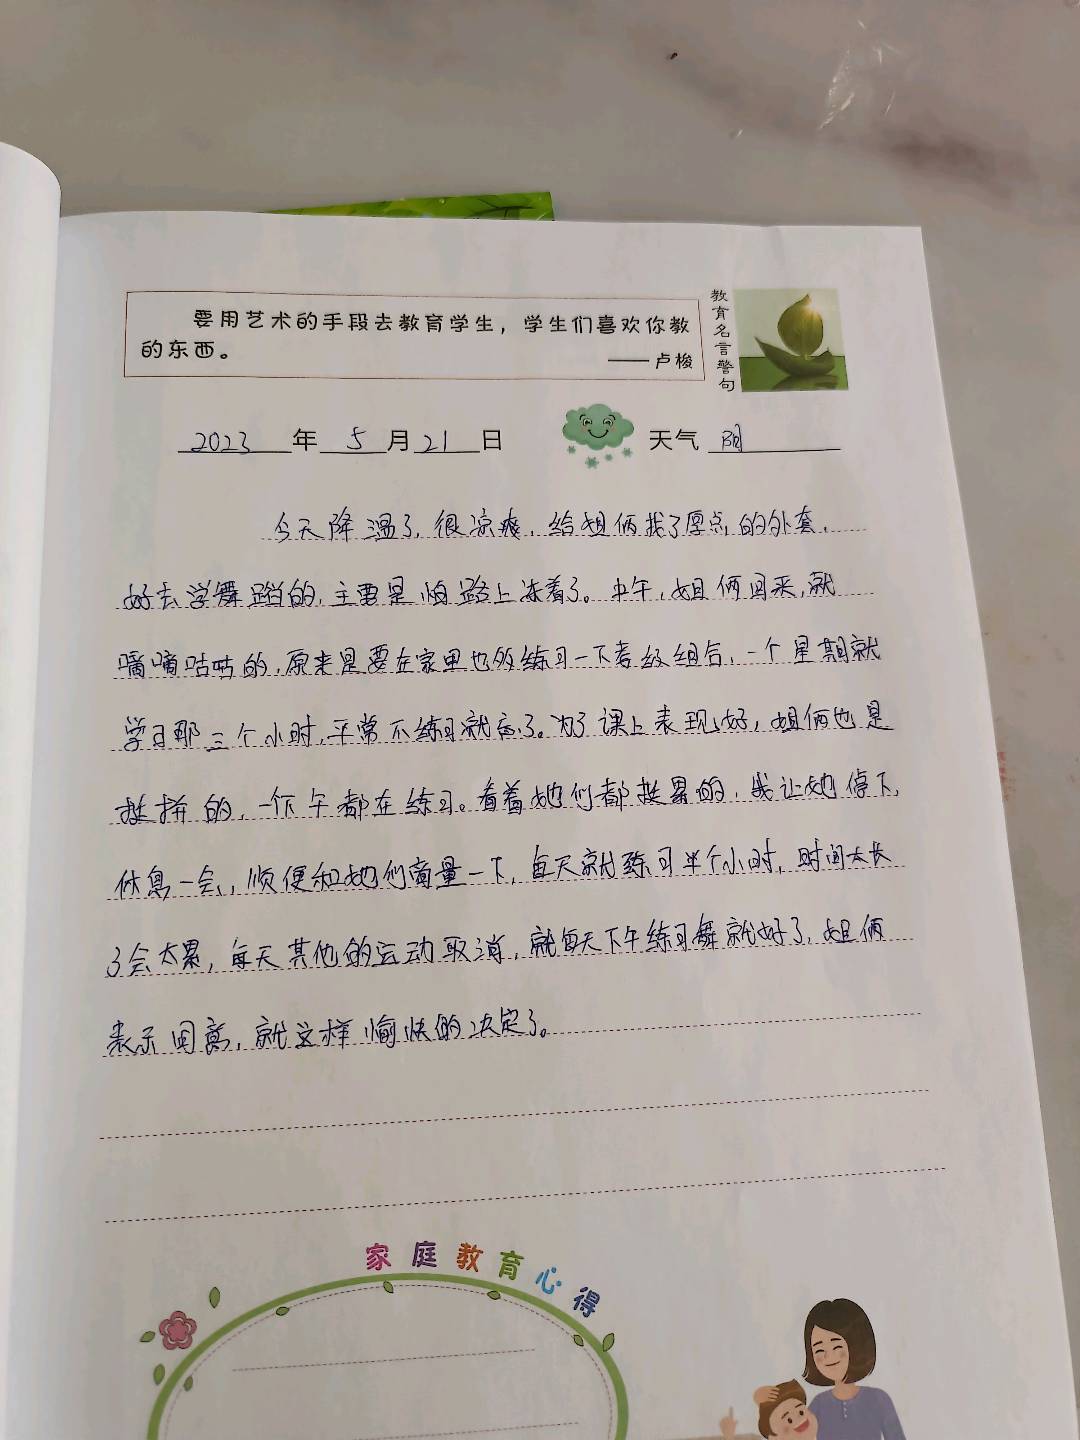 要用艺术的手段去教育学生，学生们喜欢你教
的东西。
——卢梭
教育名言警句
2023年5月21日 天气 阴
今天降温了，很凉爽，给姐俩找了厚点的外套，
好去学舞蹈的，主要是怕路上冻着了。中午，姐俩回来，就
嘀嘀咕咕的，原来是要在家里也的练习一下考级组合，一个星期就
学习那三个小时，平常不练习就忘了。为了课上表现好，姐俩也是
挺拼的，一个下午都在练习。看着她们都挺累的，我让她停下，
休息一会，顺便和她们商量一下，每天就练习半个小时，时间太长
了会太累，每天其他的运动取消，就每天下午练习舞就好了，姐俩
表示同意，就这样愉快的决定了。
家庭教育心得